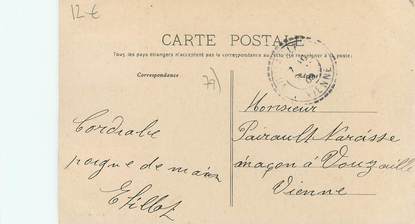 12 €
CARTE POSTALE
Tous les pays étrangers n'acceptent pas la correspondance au recto (se renseigner à la poste)
Correspondance
79)
VIENNE
Monsieur
Pairault Narcisse
maçon à Vouzailles
Vienne
Cordiale
poigne de main